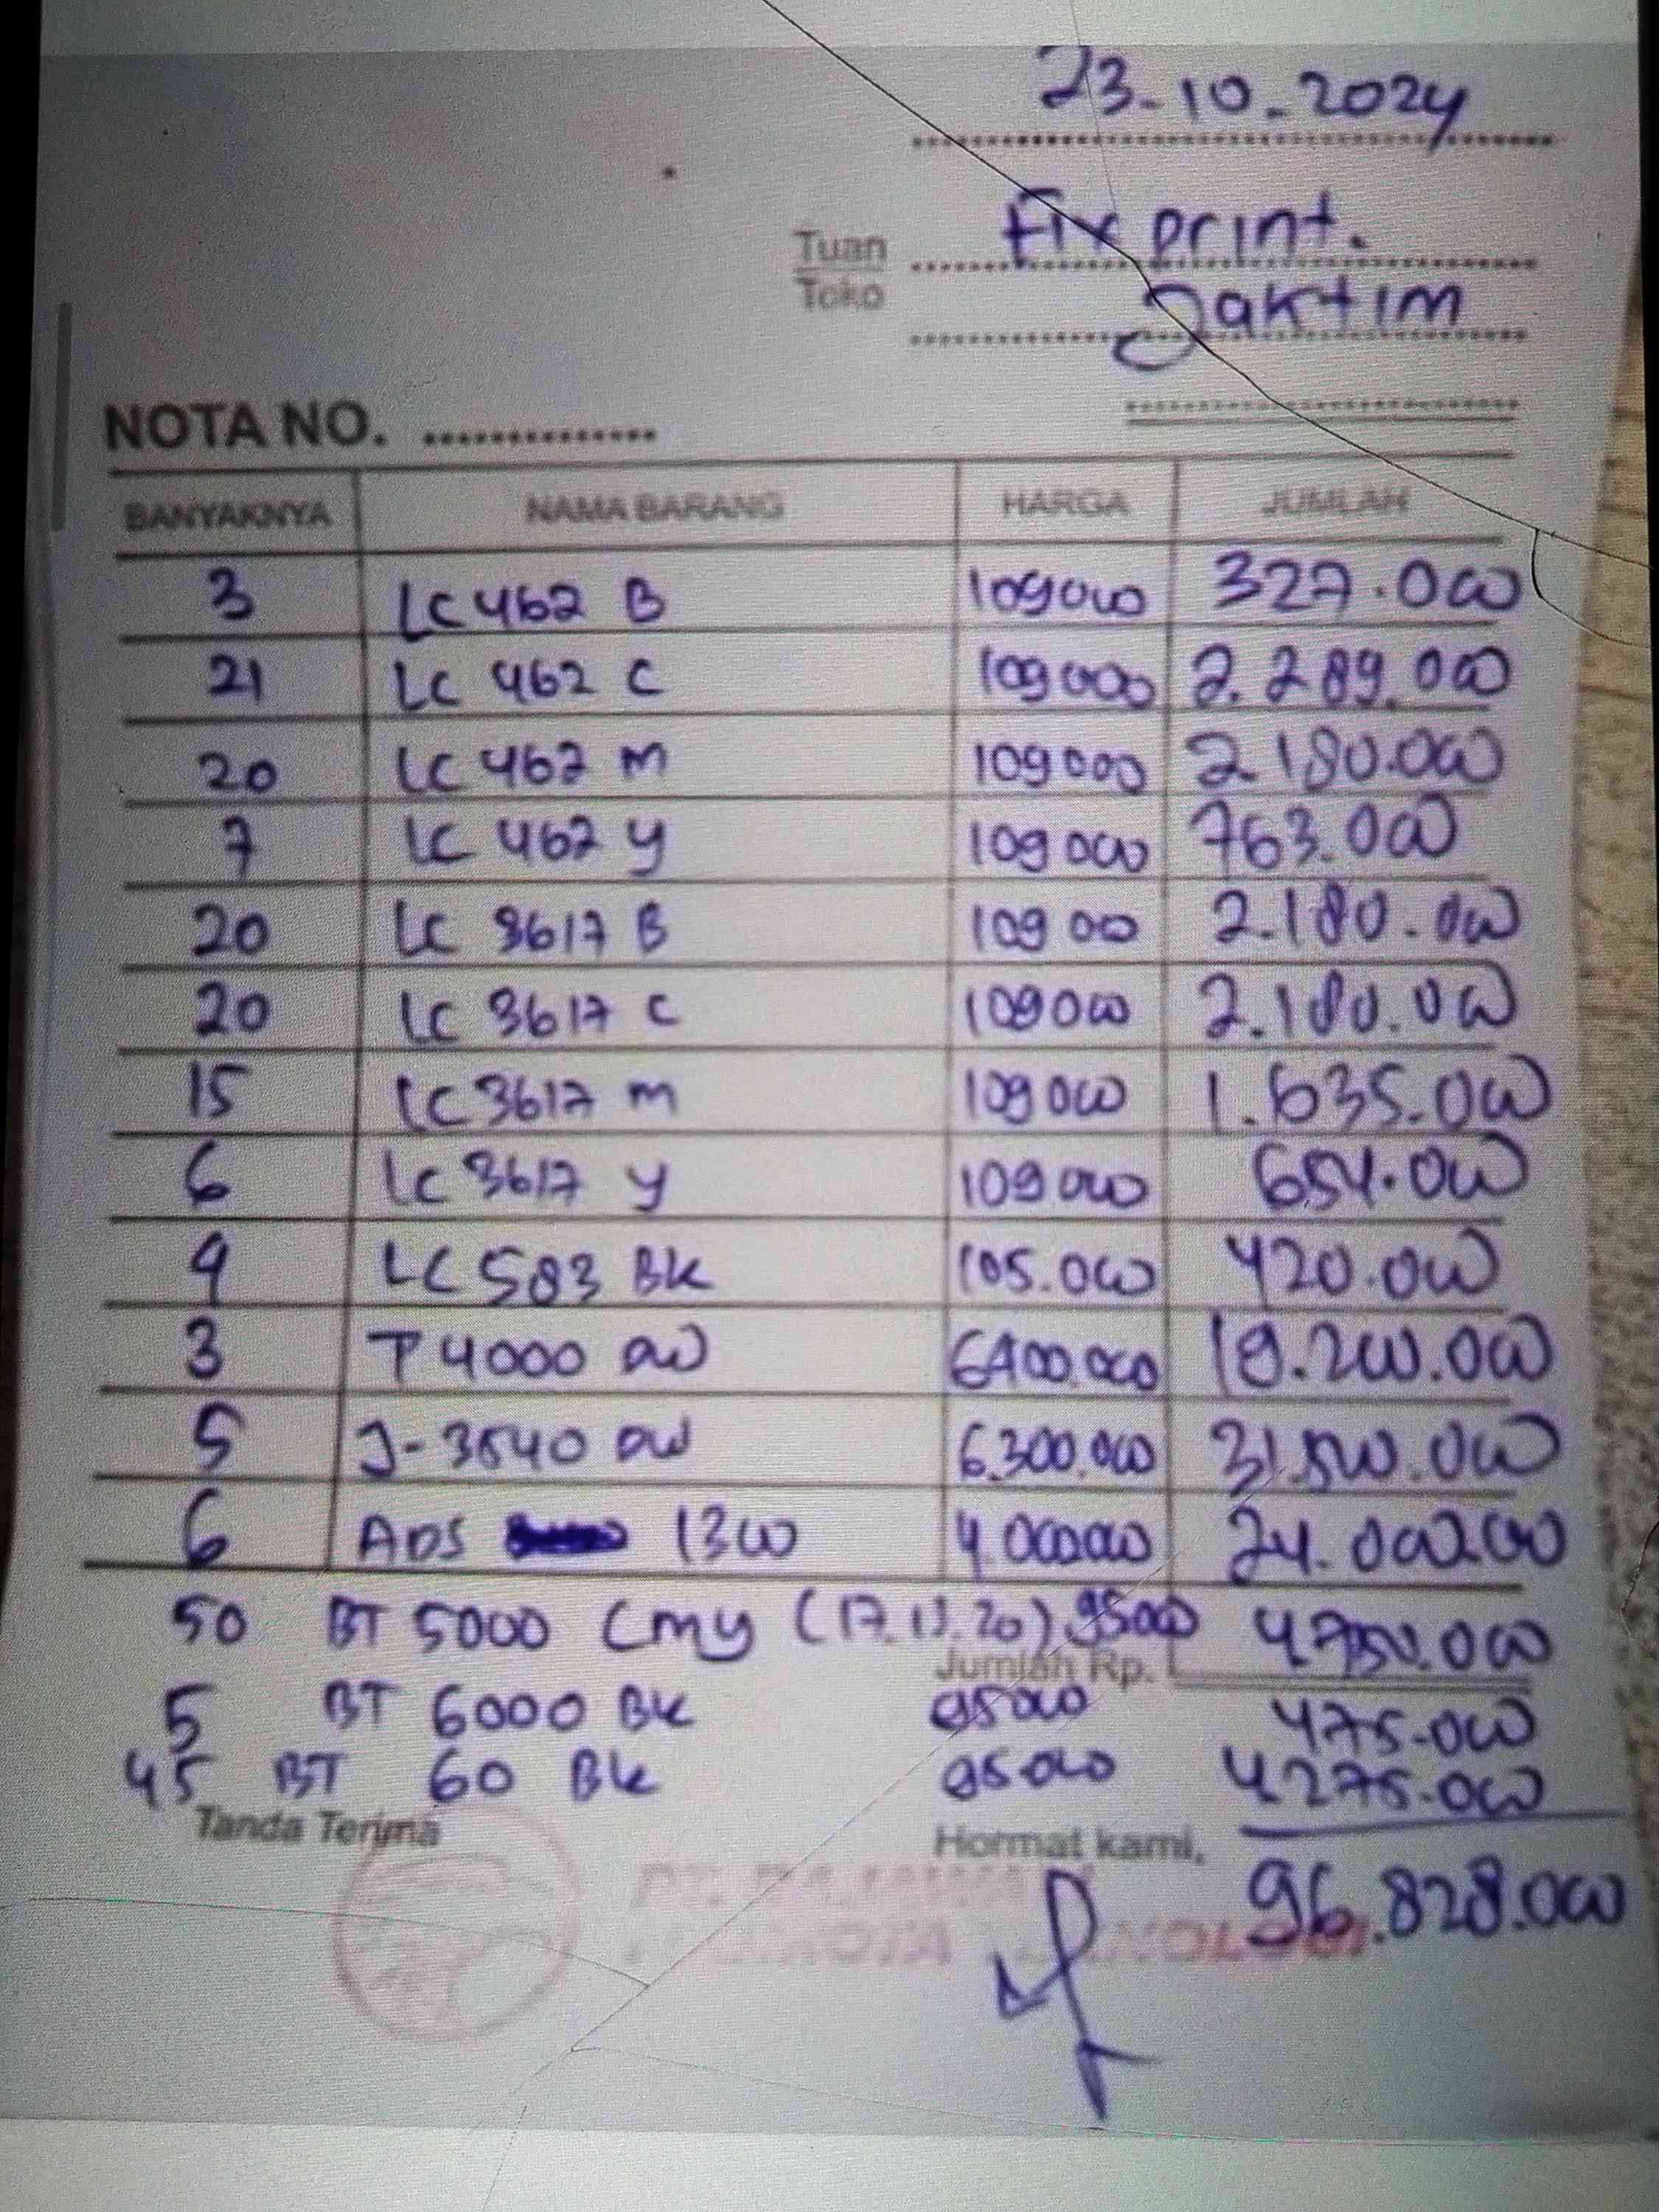 23-10-2024
Tuan Fix print.
Toko Jaktim
NOTA NO. ..............
BANYAKNYA NAMA BARANG HARGA JUMLAH
3 LC 462 B 109000 327.000
21 LC 462 C 109000 2.289.000
20 LC 462 M 109000 2.180.000
7 LC 462 Y 109000 763.000
20 LC 3617 B 109000 2.180.000
20 LC 3617 C 109000 2.180.000
15 LC 3617 M 109000 1.635.000
6 LC 3617 Y 109000 654.000
4 LC 583 BK 105.000 420.000
3 T4000 DW 6400.000 19.200.000
5 J-3540 DW 6.300.000 31.500.000
6 ADS 1300 4.000000 24.000.000
50 BT 5000 CMY (17.13.20) 95000 4750.000
Jumlah Rp.
5 BT 6000 BK 95000 475.000
45 BT 60 BK 95000 4275.000
Tanda Terima Hormat kami,
96.828.000
PT.